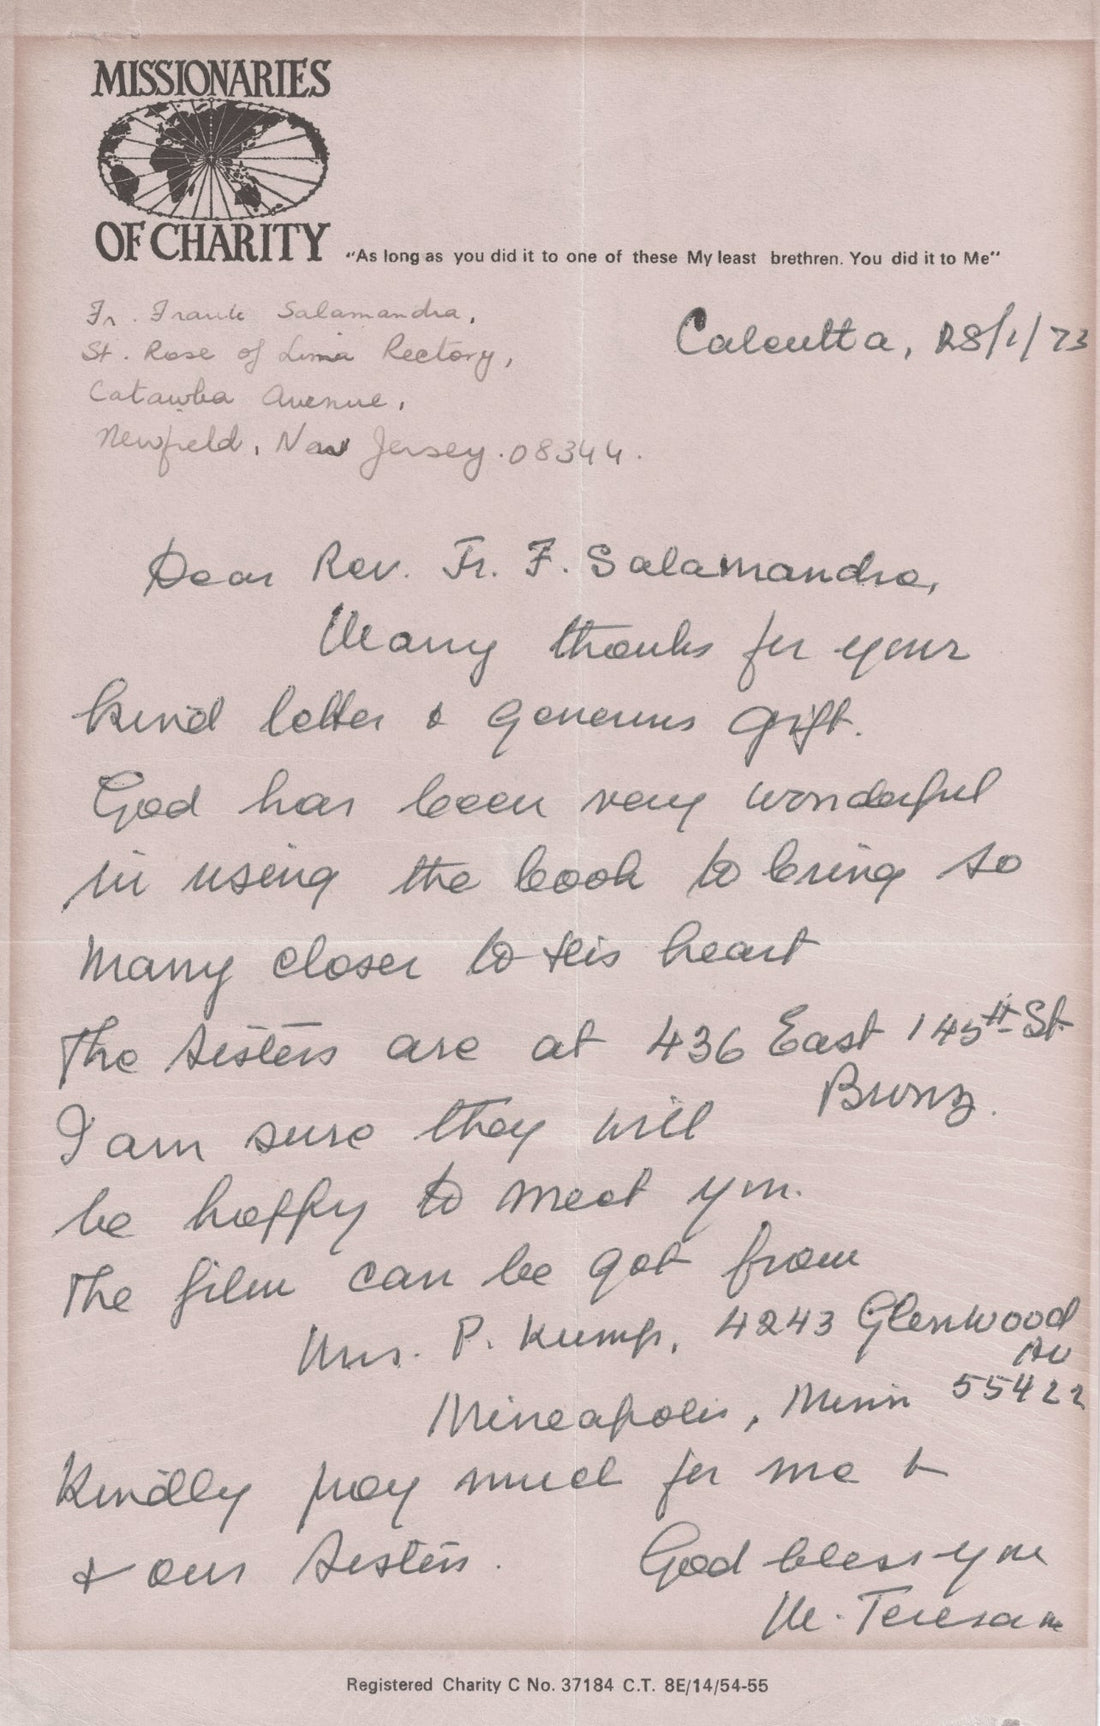 MISSIONARIES
OF CHARITY
"As long as you did it to one of these My least brethren. You did it to Me"
Fr. Frank Salamandra,
St. Rose of Lima Rectory,
Catawba Avenue,
Newfield, New Jersey. 08344.
Calcutta, 28/1/73
Dear Rev. Fr. F. Salamandra,
Many thanks for your
kind letter & generous gift.
God has been very wonderful
in using the book to bring so
many closer to His heart
The Sisters are at 436 East 145th St
Bronx.
I am sure they will
be happy to meet you.
The film can be got from
Mrs. P. Kump, 4243 Glenwood
Av
Mineapolis, Minn 55422
Kindly pray much for me &
& our Sisters.
God bless you
M. Teresa mc
Registered Charity C No. 37184 C.T. 8E/14/54-55